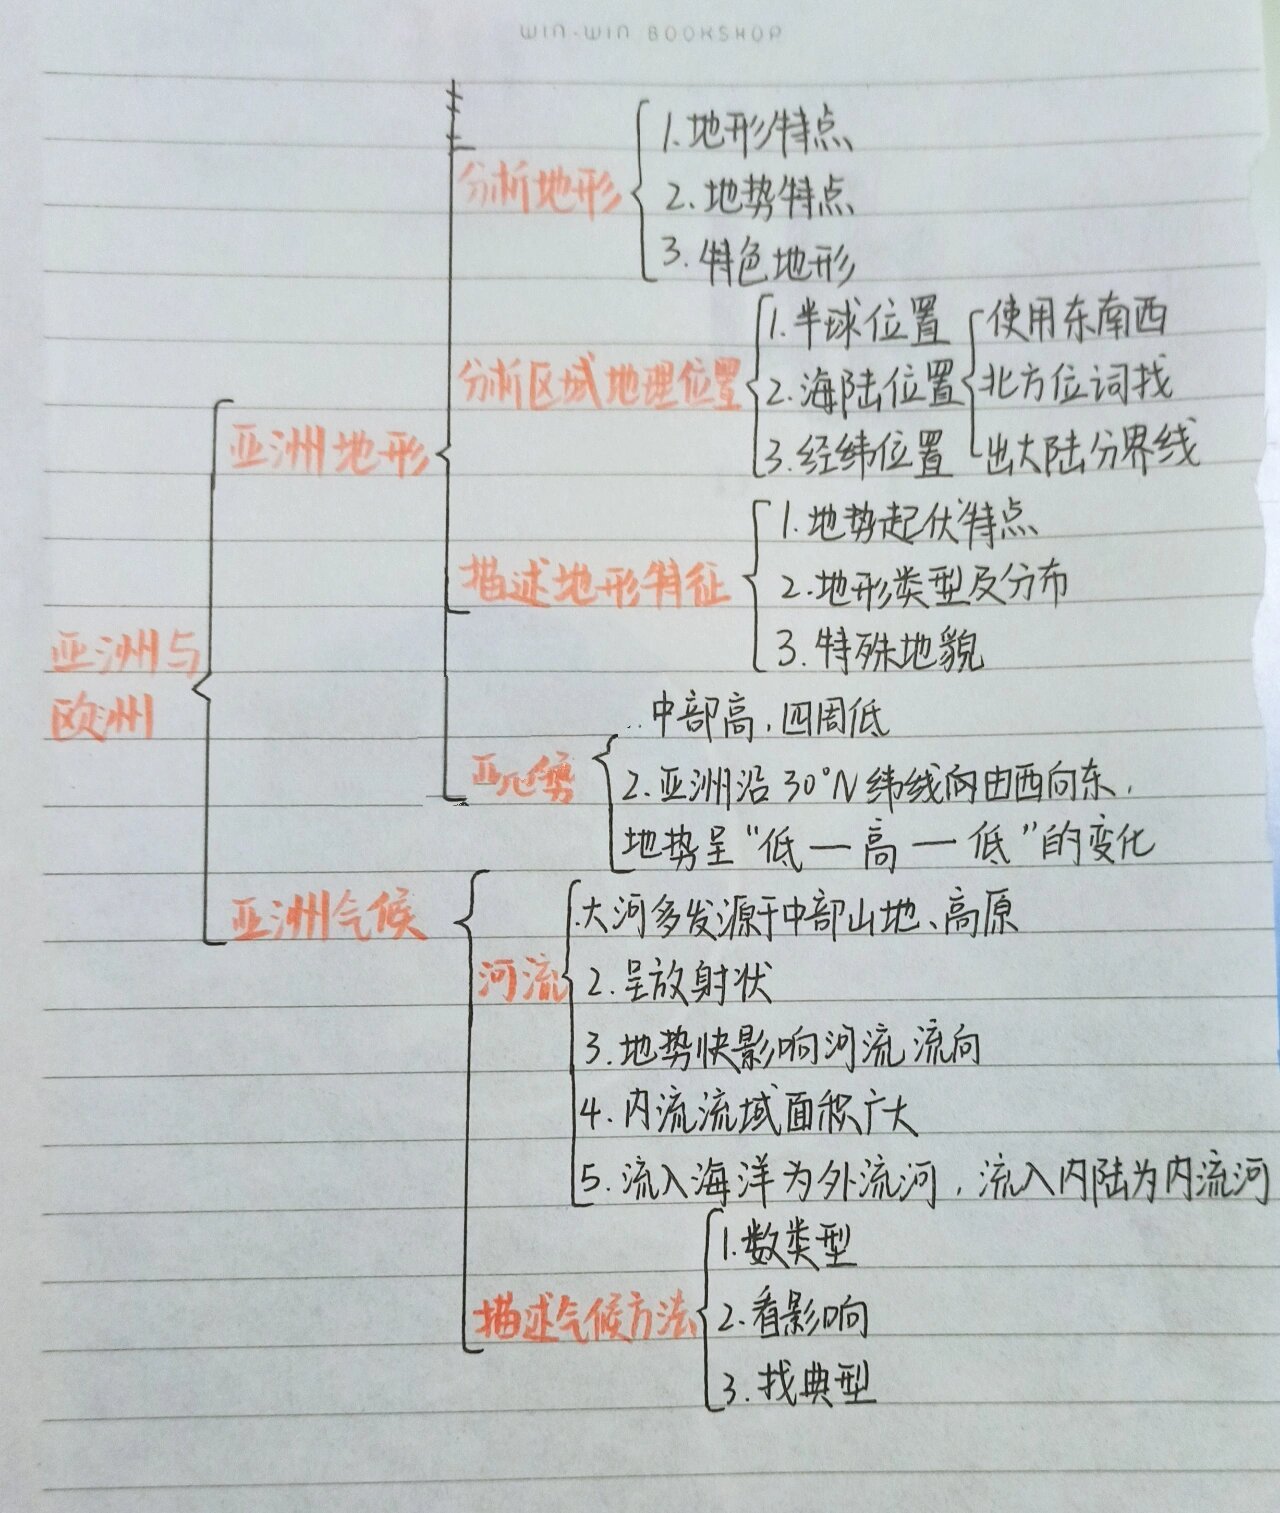 WIN-WIN BOOKSHOP
1.地形特点
分析地形
2.地势特点
3.特色地形
1.半球位置
使用东南西
分析区域地理位置
2.海陆位置
北方位词找
3.经纬位置
出大陆分界线
亚洲地形
1.地势起伏特点
描述地形特征
2.地形类型及分布
3.特殊地貌
亚洲与
欧洲
中部高,四周低
势
2.亚洲沿30°N纬线向由西向东,
地势呈"低—高—低"的变化
亚洲气候
大河多发源于中部山地、高原
河流
2.呈放射状
3.地势快影响河流流向
4.内流流域面积广大
5.流入海洋为外流河,流入内陆为内流河
1.数类型
描述气候方法
2.看影响
3.找典型